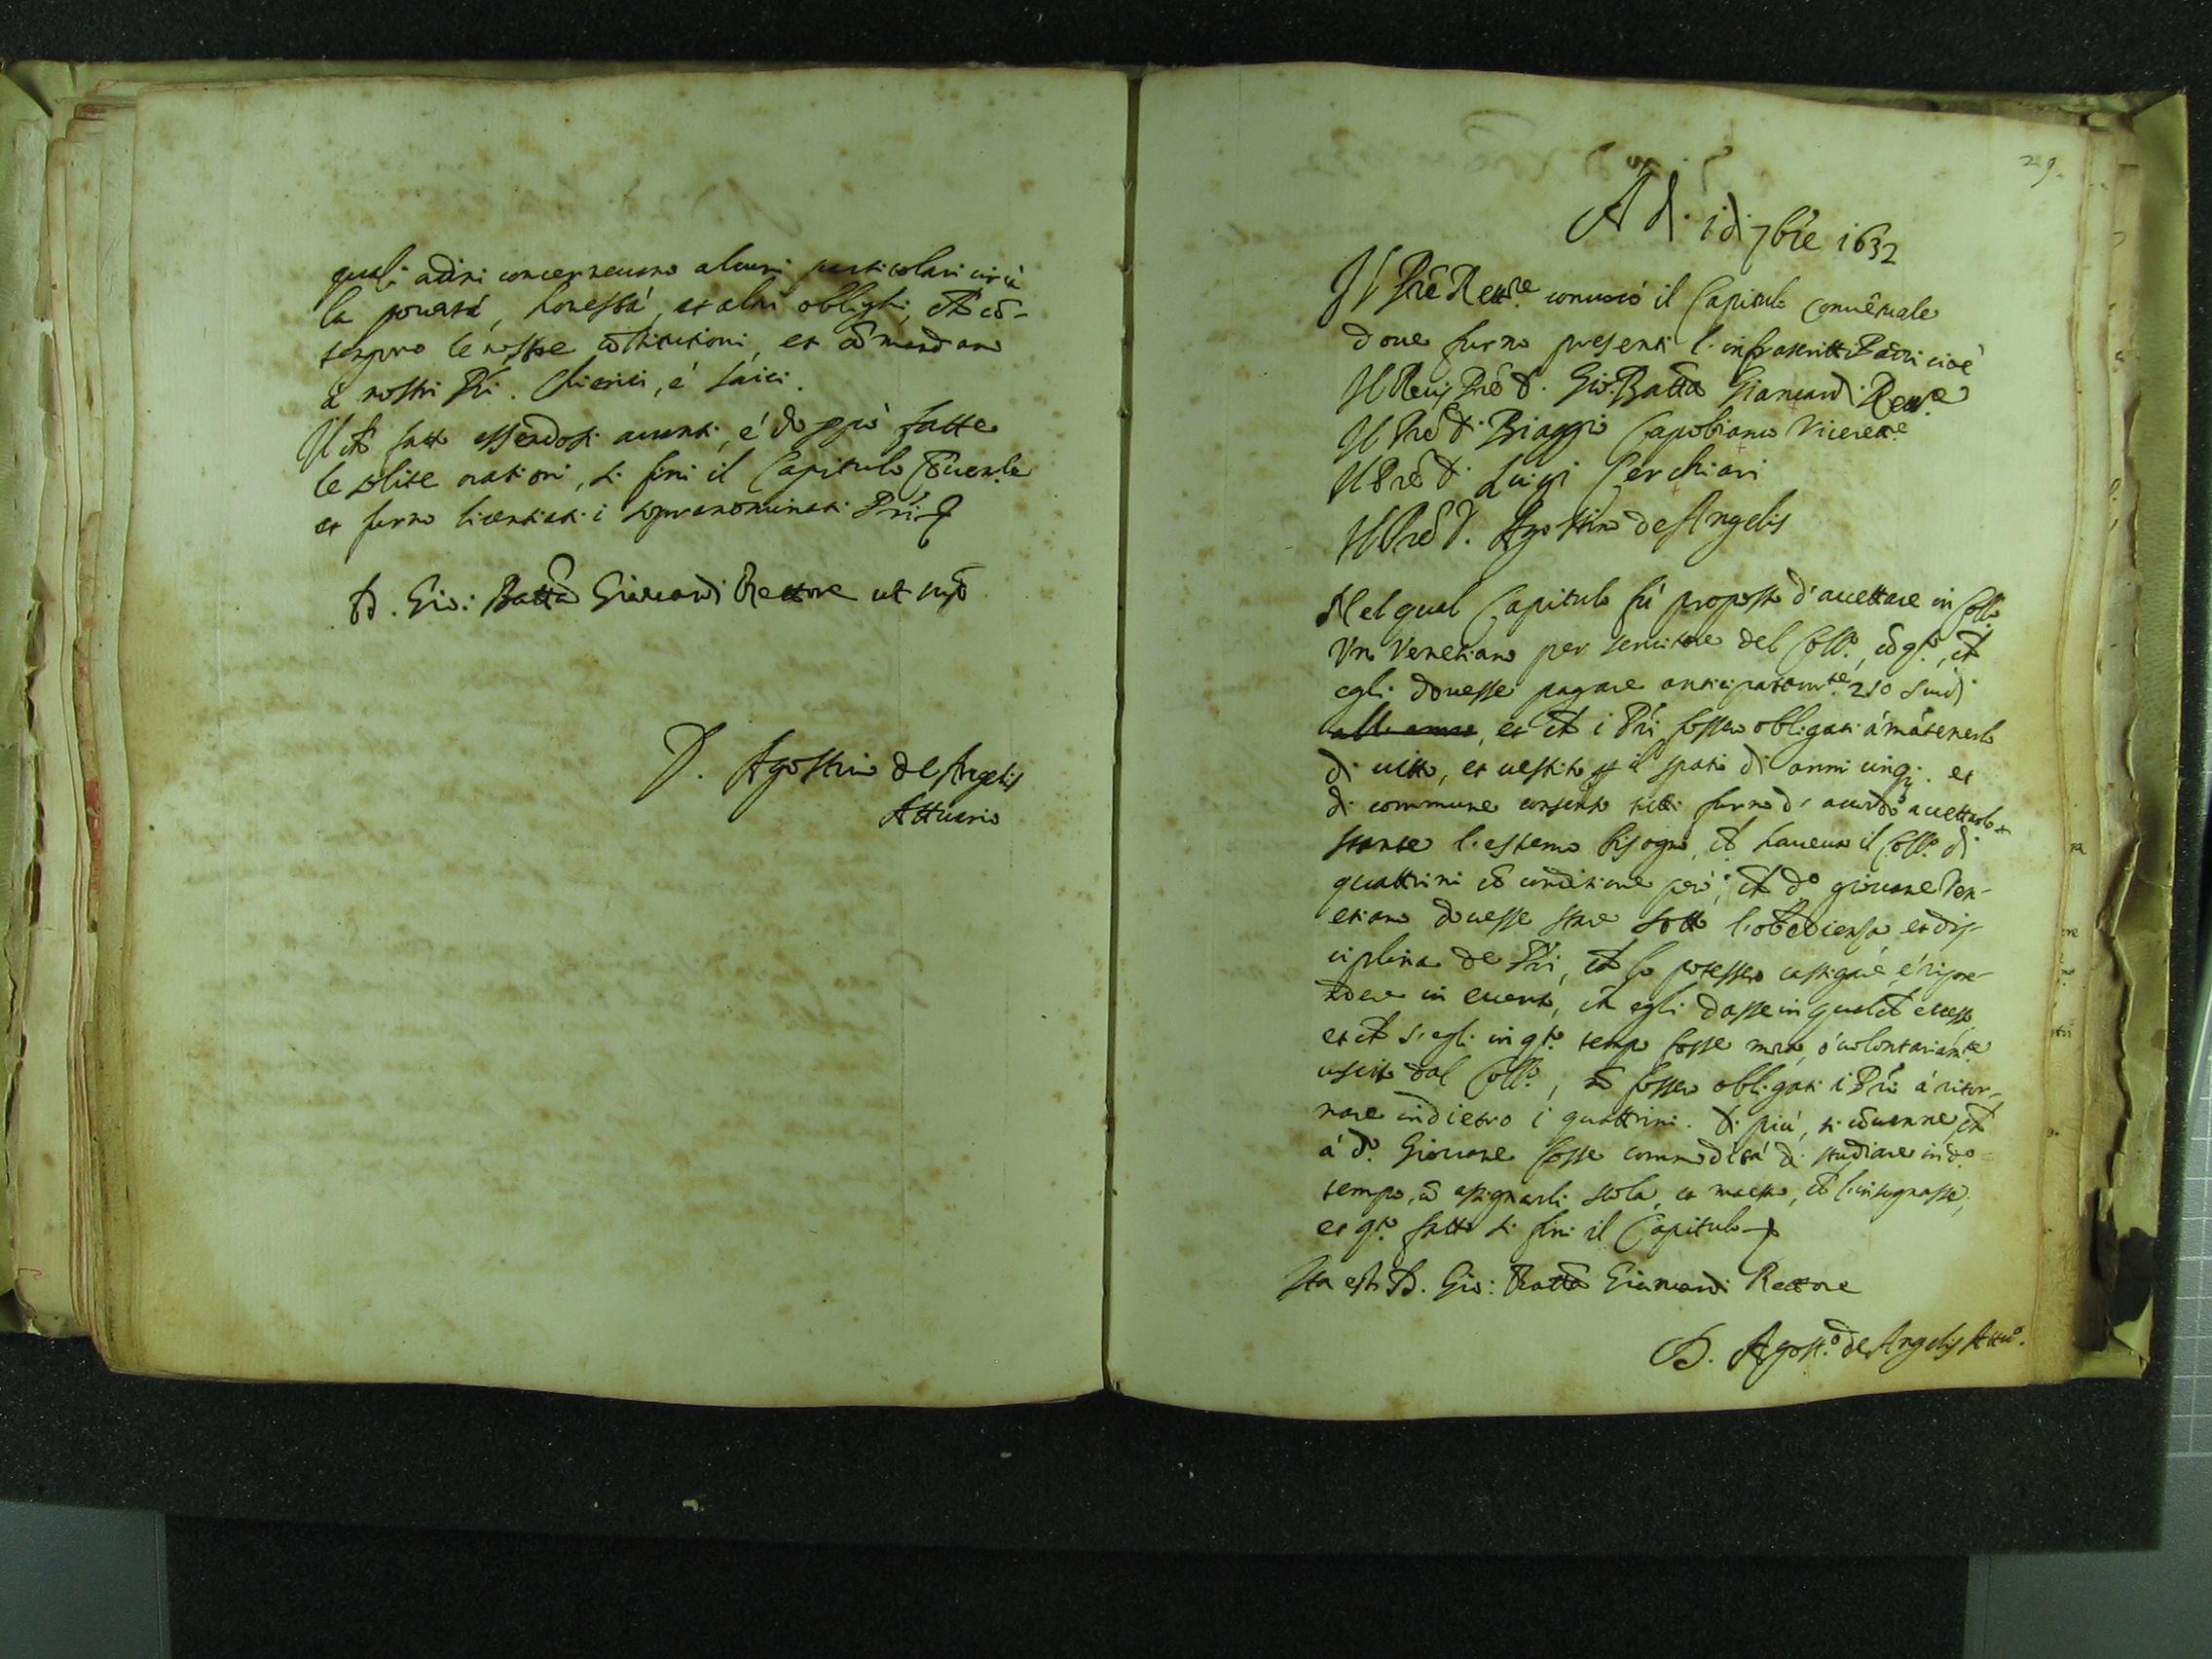 quali ordini concerneuano alcuni particolari circà
la pouertà, honestà, et altri oblighi, che cõ-
tengono le nostre cõstitutioni, et cõmandano
à nostri Pri. Chierici, é laici.
Il che fatto essendosi auuerti, é doppò fatte
le solite orationi, si finì il Capitulo Cõuen.le
et furno licentiati i sopranominati Pri
D. Gio: Batta Giancardi Rettore ut sup.
D. Agostino de Angelis
Attuario
29.
A di. 1 di 7bre 1632
Il Prê Rett.re conuocò il Capitulo Conuêtuale
doue furno presenti l'infrascritti Padri cioè
Il Reu. Prê D. Gio: Batta Giancardi Rett.e
Il Prê D. Biaggio Capobianco Vicerett.e
Il Prê D. Luigi Cerchiari
Il Prê D. Agostino de Angelis
Nel qual Capitulo fù proposto d'accettare in Coll.o
Vn Venetiano per seruitore del Coll.o, cõ q.to, che
egli douesse pagare anticipatam.te 250 scudi
all'anno, et che i Pri fossero obligati à mâtenerlo
di uitto, et uestito p il spatio di anni cinq;. et
di commune consenso tutti furno d'accordo accettarlo
stante l'estremo bisogno, che haueua il Coll.o di
quattrini cõ conditione però, che d.o giouane Ven-
etiano douesse stare sotto l'obedienza, et dis-
ciplina de Pri, che lo potessero castigare, é ripre-
ndere in euento, che egli dasse in qualche eccesso
et che s'egli in q.to tempo fosse morto, ó uolontariam.te
uscito dal Coll.o, nõ fossero obligati i Pri à ritor-
nare indietro i quattrini. Di più, si cõuenne che
à d.o Giouane fosse commodità di studiare in d.o
tempo, cõ assignarli scola, et maestro, che l'insegnasse,
et q.to fatto si finì il Capitulo
Ita est D. Gio: Batta Giancardi Rettore
D. Agost.o de Angelis Attu.o